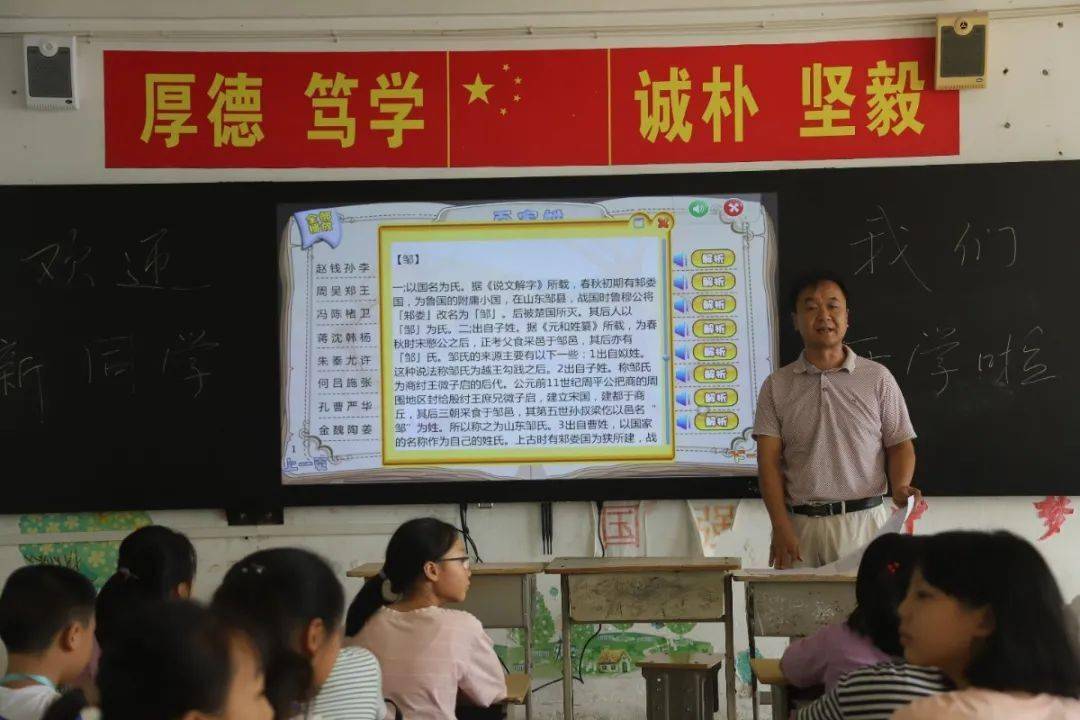 厚德 笃学 诚朴 坚毅
欢迎
新同学
我们
学啦
赵钱孙李
周吴郑王
冯陈褚卫
蒋沈韩杨
朱秦尤许
何吕施张
孔曹严华
金魏陶姜
1
【邹】
一;以国名为氏。据《说文解字》所载，春秋初期有邾娄
国，为鲁国的附庸小国，在山东邹县，战国时鲁穆公将
「邾娄」改名为「邹」。后被楚国所灭。其后人以
「邹」为氏。二;出自子姓。据《元和姓纂》所载，为春
秋时宋愍公之后，正考父食采邑于邹邑，其后亦有
「邹」氏。邹氏的来源主要有以下一些：1出自姒姓。
这种说法称邹氏为越王勾践之后。2出自子姓。称邹氏
为商纣王微子启的后代。公元前11世纪周平公把商的周
围地区封给殷纣王庶兄微子启，建立宋国，建都于商
丘，其后三朝采食于邹邑，其第五世孙叔梁仡以邑名“
邹”为姓。所以称之为山东邹氏。3出自曹姓，以国家
的名称作为自己的姓氏。上古时有邾娄国为狭所建，战
解析
解析
解析
解析
解析
解析
解析
解析
国
强
梦